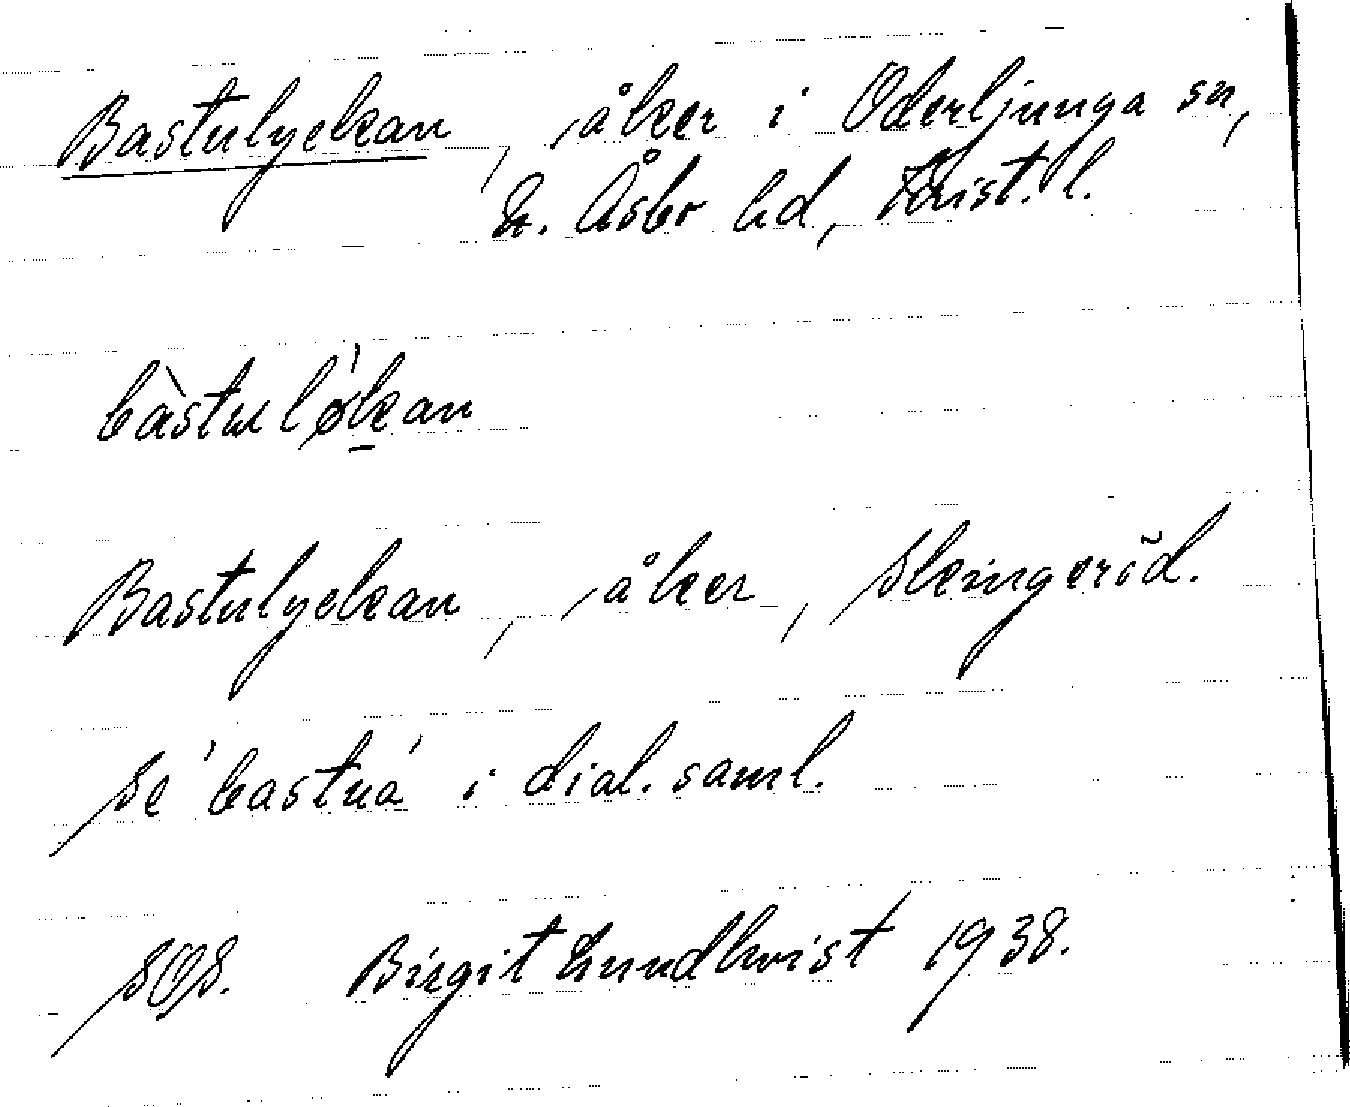 Bastulyckan, åker i Oderljunga sn,
N. Åsbo hd, Krist. l.
bàstuløkan
Bastulyckan, åker, Sleingeröd.
Se 'bastua' i dial. saml.
SOS. Birgit Lundkvist 1938.